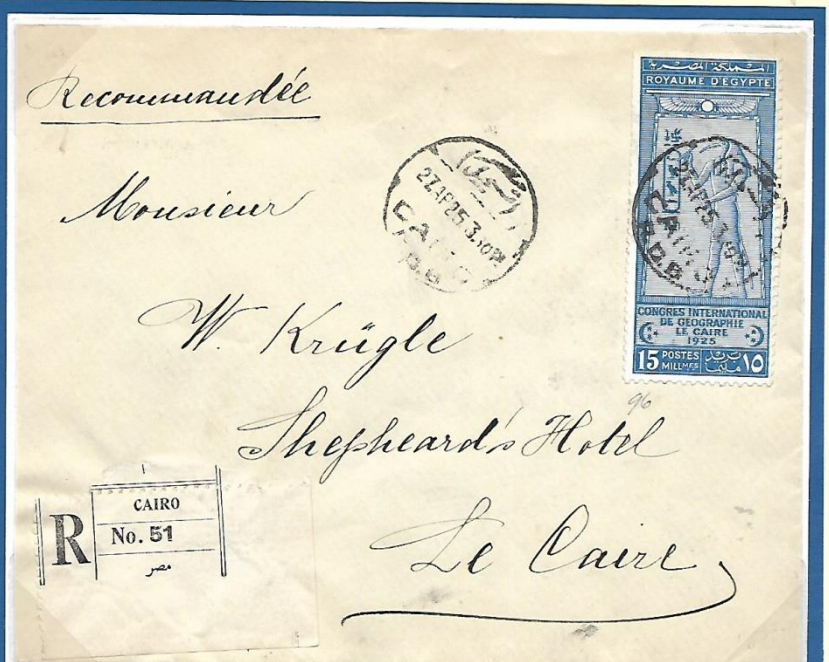 Recommandée
Monsieur
W. Krügle
Shepheard's Hotel
Le Caire
CAIRO
27 AP 25. 3
CAIRO
المملكة المصرية
ROYAUME D'EGYPTE
27 AP 25. 3
CAIRO
CONGRES INTERNATIONAL
DE GEOGRAPHIE
LE CAIRE
1925
15 POSTES MILLMES بريد مليم ١٥
96
R
No. 51
مصر